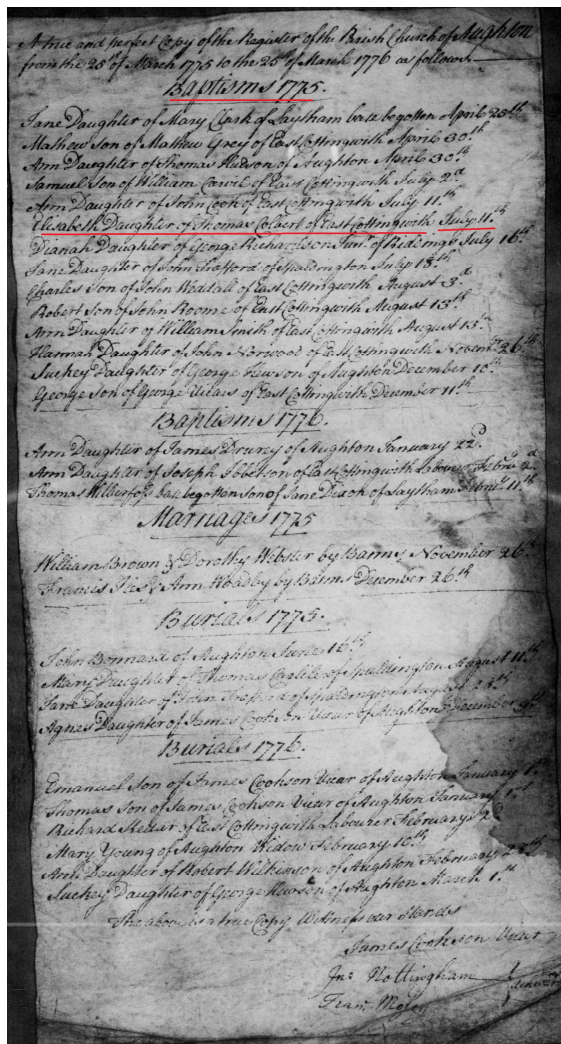 A true and perfect Copy of the Register of the Parish Church of Aughton
from the 25th of March 1775 to the 25th of March 1776 as follows
Baptisms 1775.
Jane Daughter of Mary Clark of Laytham base begotten April 20th
Mathew Son of Mathew Grey of East Cottingwith April 30th
Ann Daughter of Thomas Hudson of Aughton April 30th
Samuel Son of William of East Cottingwith July 2d
Ann Daughter of John Cook of East Cottingwith July 11th
Elisabeth Daughter of Thomas Colbert of East Cottingwith July 11th
Dianah Daughter of George Richardson Junr. of Ridemgs July 16th
Jane Daughter of John of Spaldington July 18th
Charles Son of John of East Cottingwith August 3d
Robert Son of John Roome of East Cottingwith August 13th
Ann Daughter of William Smith of East Cottingwith August 13th
Hannah Daughter of John Norwood of East Cottingwith Novemr 26th
Suckey Daughter of George Hewson of Aughton December 10th
George Son of George Vicars of East Cottingwith December 11th
Baptisms 1776.
Ann Daughter of James Drurey of Aughton January 22d
Ann Daughter of Joseph Ibbetson of East Cottingwith Labourer Febru 2d
Thomas base begotten Son of Jane Dixon of Laytham Febru 11th
Marriages 1775
William Brown & Dorothy Webster by Banns November 26th
Francis & Ann by Banns December 26th
Burials 1775.
John Bonnard of Aughton June 16th
Mary Daughter of Thomas of Spaldington August 11th
Jane Daughter of John of Spaldington August
Agnes Daughter of James Cookson Vicar of Aughton December 9th
Burials 1776.
Emanuel Son of James Cookson Vicar of Aughton January 1st
Thomas Son of James Cookson Vicar of Aughton January 1st
Richard of East Cottingwith Labourer February 2d
Mary Young of Aughton Widow February 10th
Ann Daughter of Robert Wilkinson of Aughton February
Suckey Daughter of George Hewson of Aughton March 1st
The above is a true Copy Witness our Hands
James Cookson Vicar
Jno Nottingham
Fran.